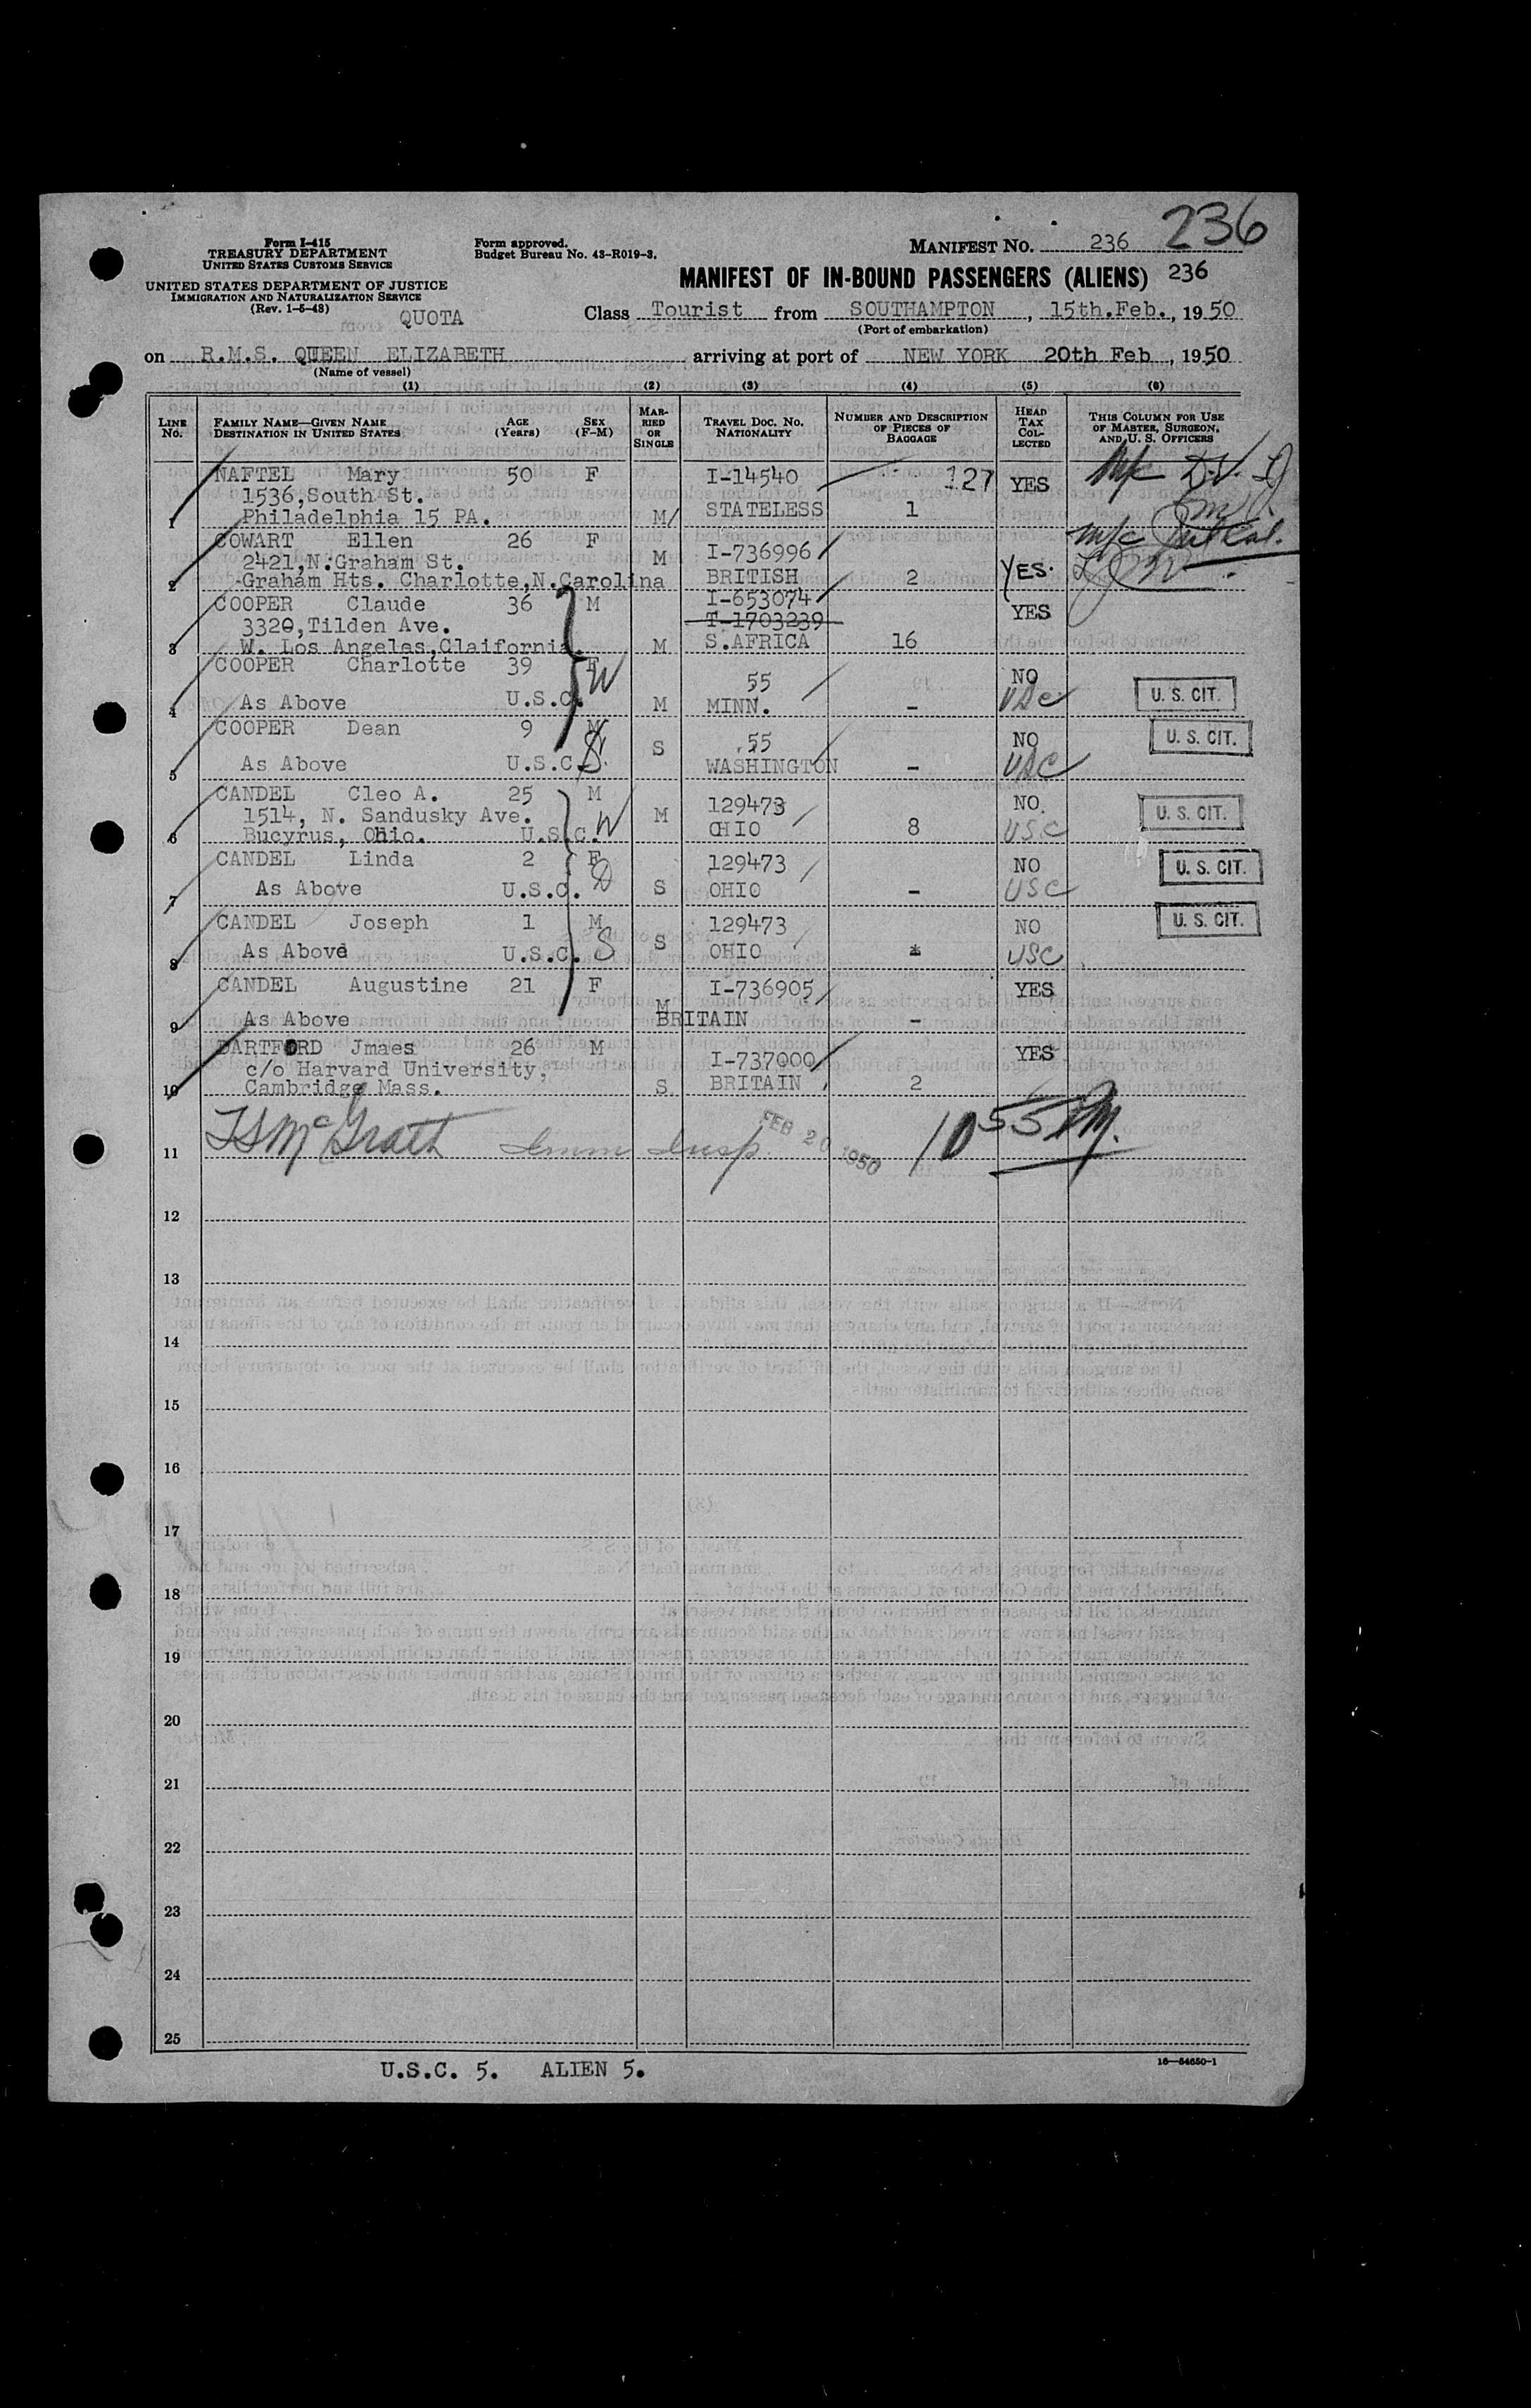 236
Form I-415
TREASURY DEPARTMENT
UNITED STATES CUSTOMS SERVICE
Form approved.
Budget Bureau No. 43-R019-3.
MANIFEST NO. 236
UNITED STATES DEPARTMENT OF JUSTICE
IMMIGRATION AND NATURALIZATION SERVICE
(Rev. 1-5-48)
QUOTA
MANIFEST OF IN-BOUND PASSENGERS (ALIENS) 236
Class Tourist from SOUTHAMPTON, 15th.Feb., 1950
(Port of embarkation)
on R.M.S. QUEEN ELIZABETH arriving at port of NEW YORK 20th Feb, 1950
(Name of vessel)
(1) (2) (3) (4) (5) (6)
LINE NO. FAMILY NAME—GIVEN NAME DESTINATION IN UNITED STATES AGE (Years) SEX (F-M) MARRIED OR SINGLE TRAVEL DOC. NO. NATIONALITY NUMBER AND DESCRIPTION OF PIECES OF BAGGAGE HEAD TAX COLLECTED THIS COLUMN FOR USE OF MASTER, SURGEON, AND U. S. OFFICERS
NAFTEL Mary 50 F I-14540 127 YES
1536,South St.
1 Philadelphia 15 PA. M STATELESS 1
COWART Ellen 26 F I-736996
2421,N.Graham St. M YES.
2 Graham Hts. Charlotte,N.Carolina BRITISH 2
COOPER Claude 36 M I-653074 YES
3320,Tilden Ave. T-1703239
3 W. Los Angelas,Claifornia. M S.AFRICA 16
COOPER Charlotte 39 F W 55 NO
4 As Above U.S.C. M MINN. - USC U. S. CIT.
COOPER Dean 9 M S 55 NO U. S. CIT.
5 As Above U.S.C. S WASHINGTON - USC
CANDEL Cleo A. 25 M 129473 NO.
1514, N. Sandusky Ave. W M U. S. CIT.
6 Bucyrus, Ohio. U.S.C. OHIO 8 USC
CANDEL Linda 2 F 129473 NO
7 As Above U.S.C. D S OHIO - USC U. S. CIT.
CANDEL Joseph 1 M 129473 NO U. S. CIT.
8 As Above U.S.C. S S OHIO * USC
CANDEL Augustine 21 F I-736905 YES
9 As Above M BRITAIN -
DARTFORD Jmaes 26 M I-737000 YES
c/o Harvard University,
10 Cambridge Mass. S BRITAIN 2
11 McGrath Imm Insp. FEB 20 1950 10 55
12
13
14
15
16
17
18
19
20
21
22
23
24
25
U.S.C. 5. ALIEN 5.
16—54650-1